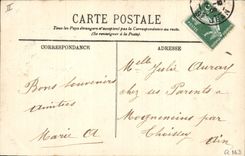 II
CARTE POSTALE
Tous les Pays étrangers n'acceptent pas la Correspondance au recto.
(Se renseigner à la Poste)
CORRESPONDANCE
ADRESSE
Bons Souvenirs
Amitiés
Marie A
Mlle Julie Avray
chez ses Parents à
Mogneneins par
Thoissey
Ain